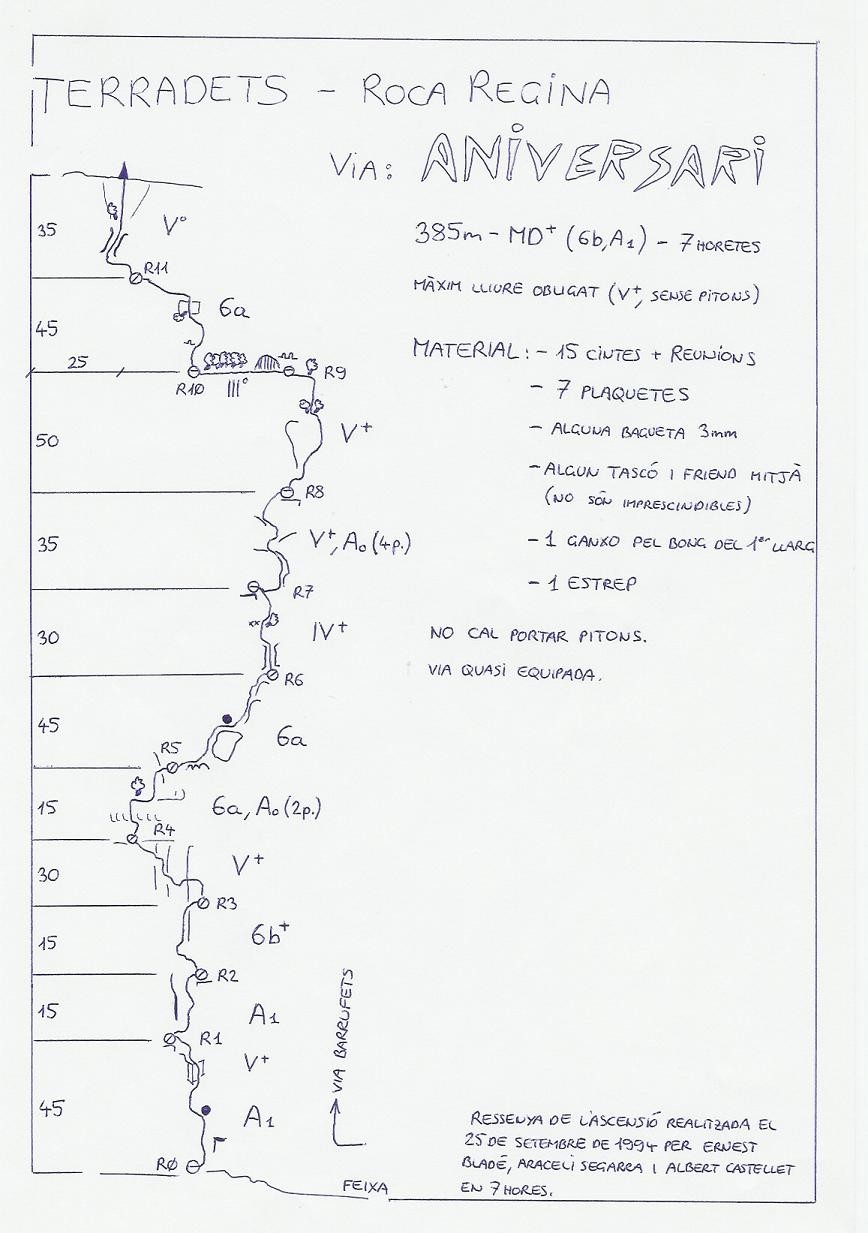 TERRADETS - ROCA REGINA
VIA: ANIVERSARI
385m - MD+ (6b, A1) - 7 HORETES
MÀXIM LLIURE OBLIGAT (V+, SENSE PITONS)
MATERIAL: - 15 CINTES + REUNIONS
- 7 PLAQUETES
- ALGUNA BAGUETA 3mm
- ALGUN TASCÓ I FRIEND MITJÀ
(NO SÓN IMPRESCINDIBLES)
- 1 GANXO PEL BONG DEL 1er LLARG
- 1 ESTREP
NO CAL PORTAR PITONS.
VIA QUASI EQUIPADA.
35 V°
R11
45 6a
25
R10 III° R9
50 V+
R8
35 V+, A0 (4p.)
R7
30 IV+
R6
45 6a
R5
15 6a, A0 (2p.)
R4
30 V+
R3
15 6b+
R2
15 A1
R1
V+
45 A1
RØ
VIA BARRUFETS
FEIXA
RESSENYA DE L'ASCENSIÓ REALITZADA EL
25 DE SETEMBRE DE 1994 PER ERNEST
BLADÉ, ARACELI SEGARRA I ALBERT CASTELLET
EN 7 HORES.